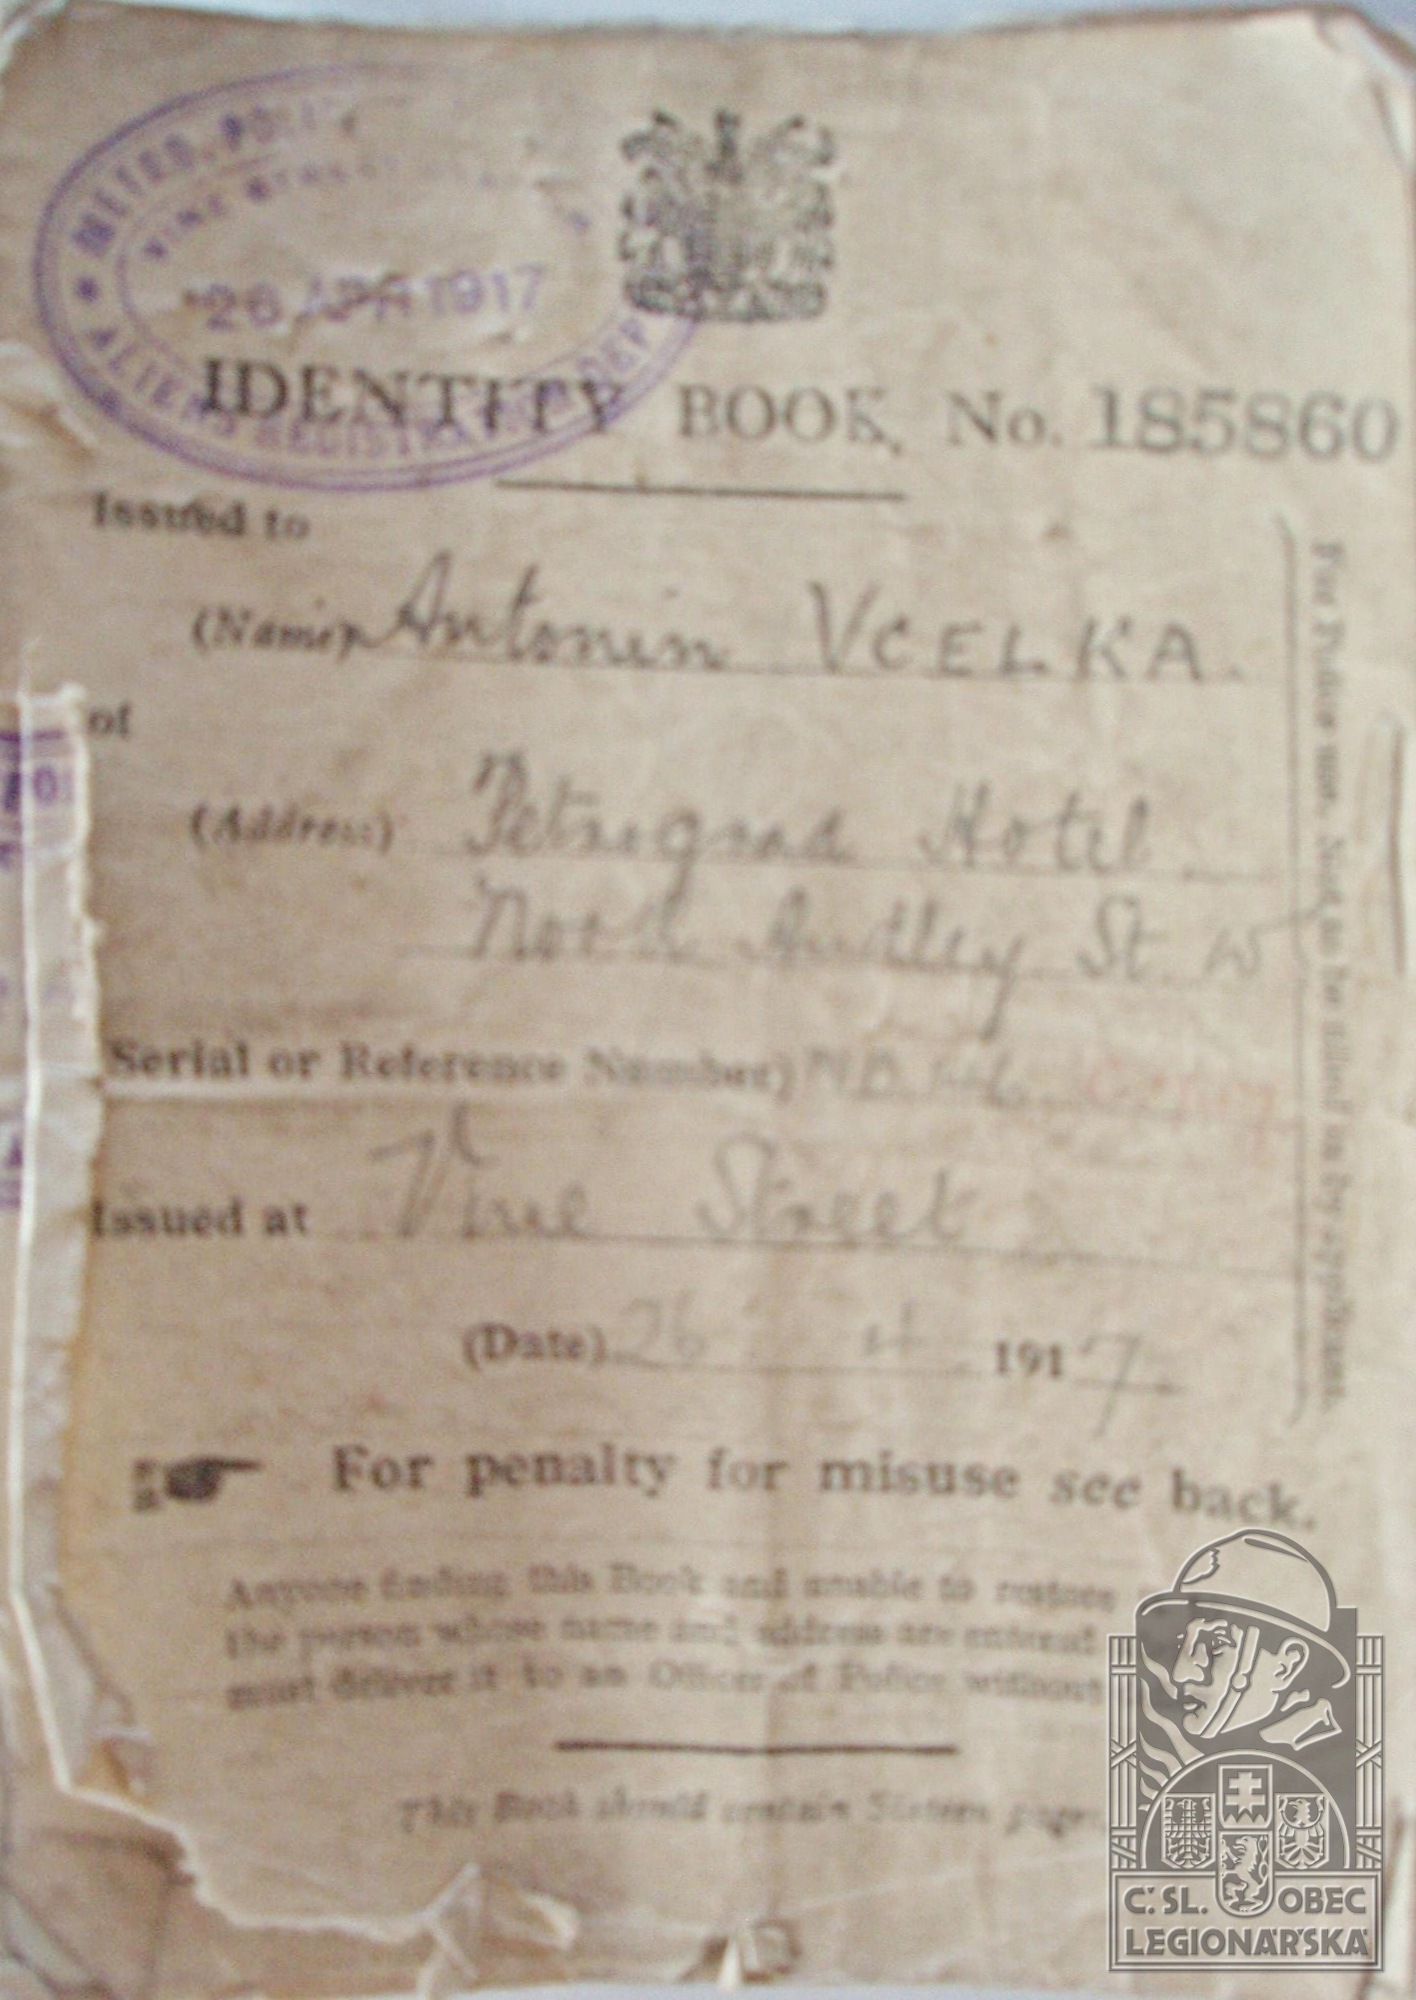 METRO. POLICE
VINE STREET
26 APR 1917
ALIENS REGISTRATION DEP
IDENTITY BOOK, No. 185860
Issued to
(Name) Antonin VCELKA.
of
(Address) Petrograd Hotel
North Audley St. W
Serial or Reference Number)
Issued at Vine Street
(Date) 26 4 1917
For penalty for misuse see back.
Anyone finding this Book and unable to restore
the person whose name and address are entered
must deliver it to an Officer of Police without
This Book should contain Sixteen pages
For Police use. Not to be filled in by applicant.
Č.SL. OBEC
LEGIONÁŘSKÁ